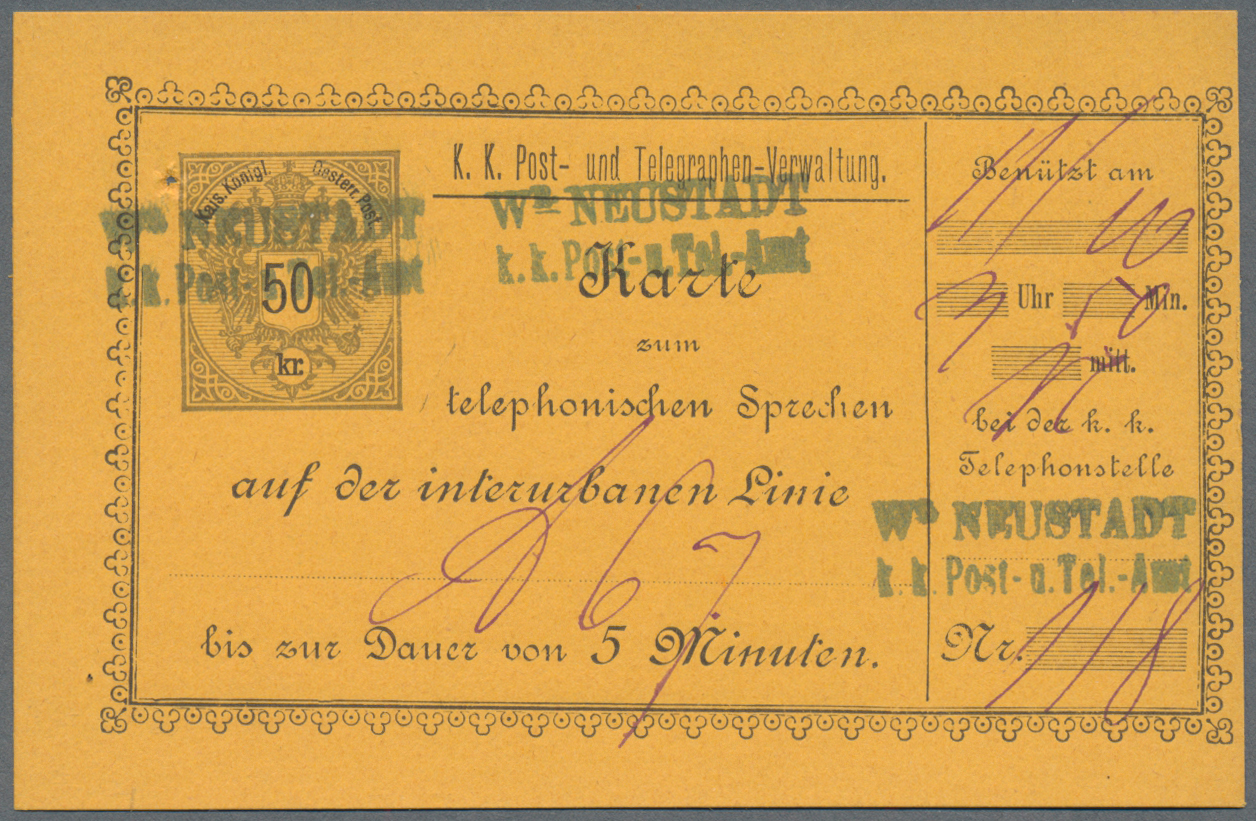 Kais. Königl. Oesterr. Post
50
kr.
K. K. Post- und Telegraphen-Verwaltung.
Wr NEUSTADT
k. k. Post- u. Tel.-Amt
Wr NEUSTADT
k. k. Post- u. Tel.-Amt
Karte
zum
telephonischen Sprechen
auf der interurbanen Linie
67
bis zur Dauer von 5 Minuten.
Benützt am
3 Uhr 50 Min.
mitt.
bei der k. k.
Telephonstelle
Wr NEUSTADT
k. k. Post- u. Tel.-Amt
Nr. 118